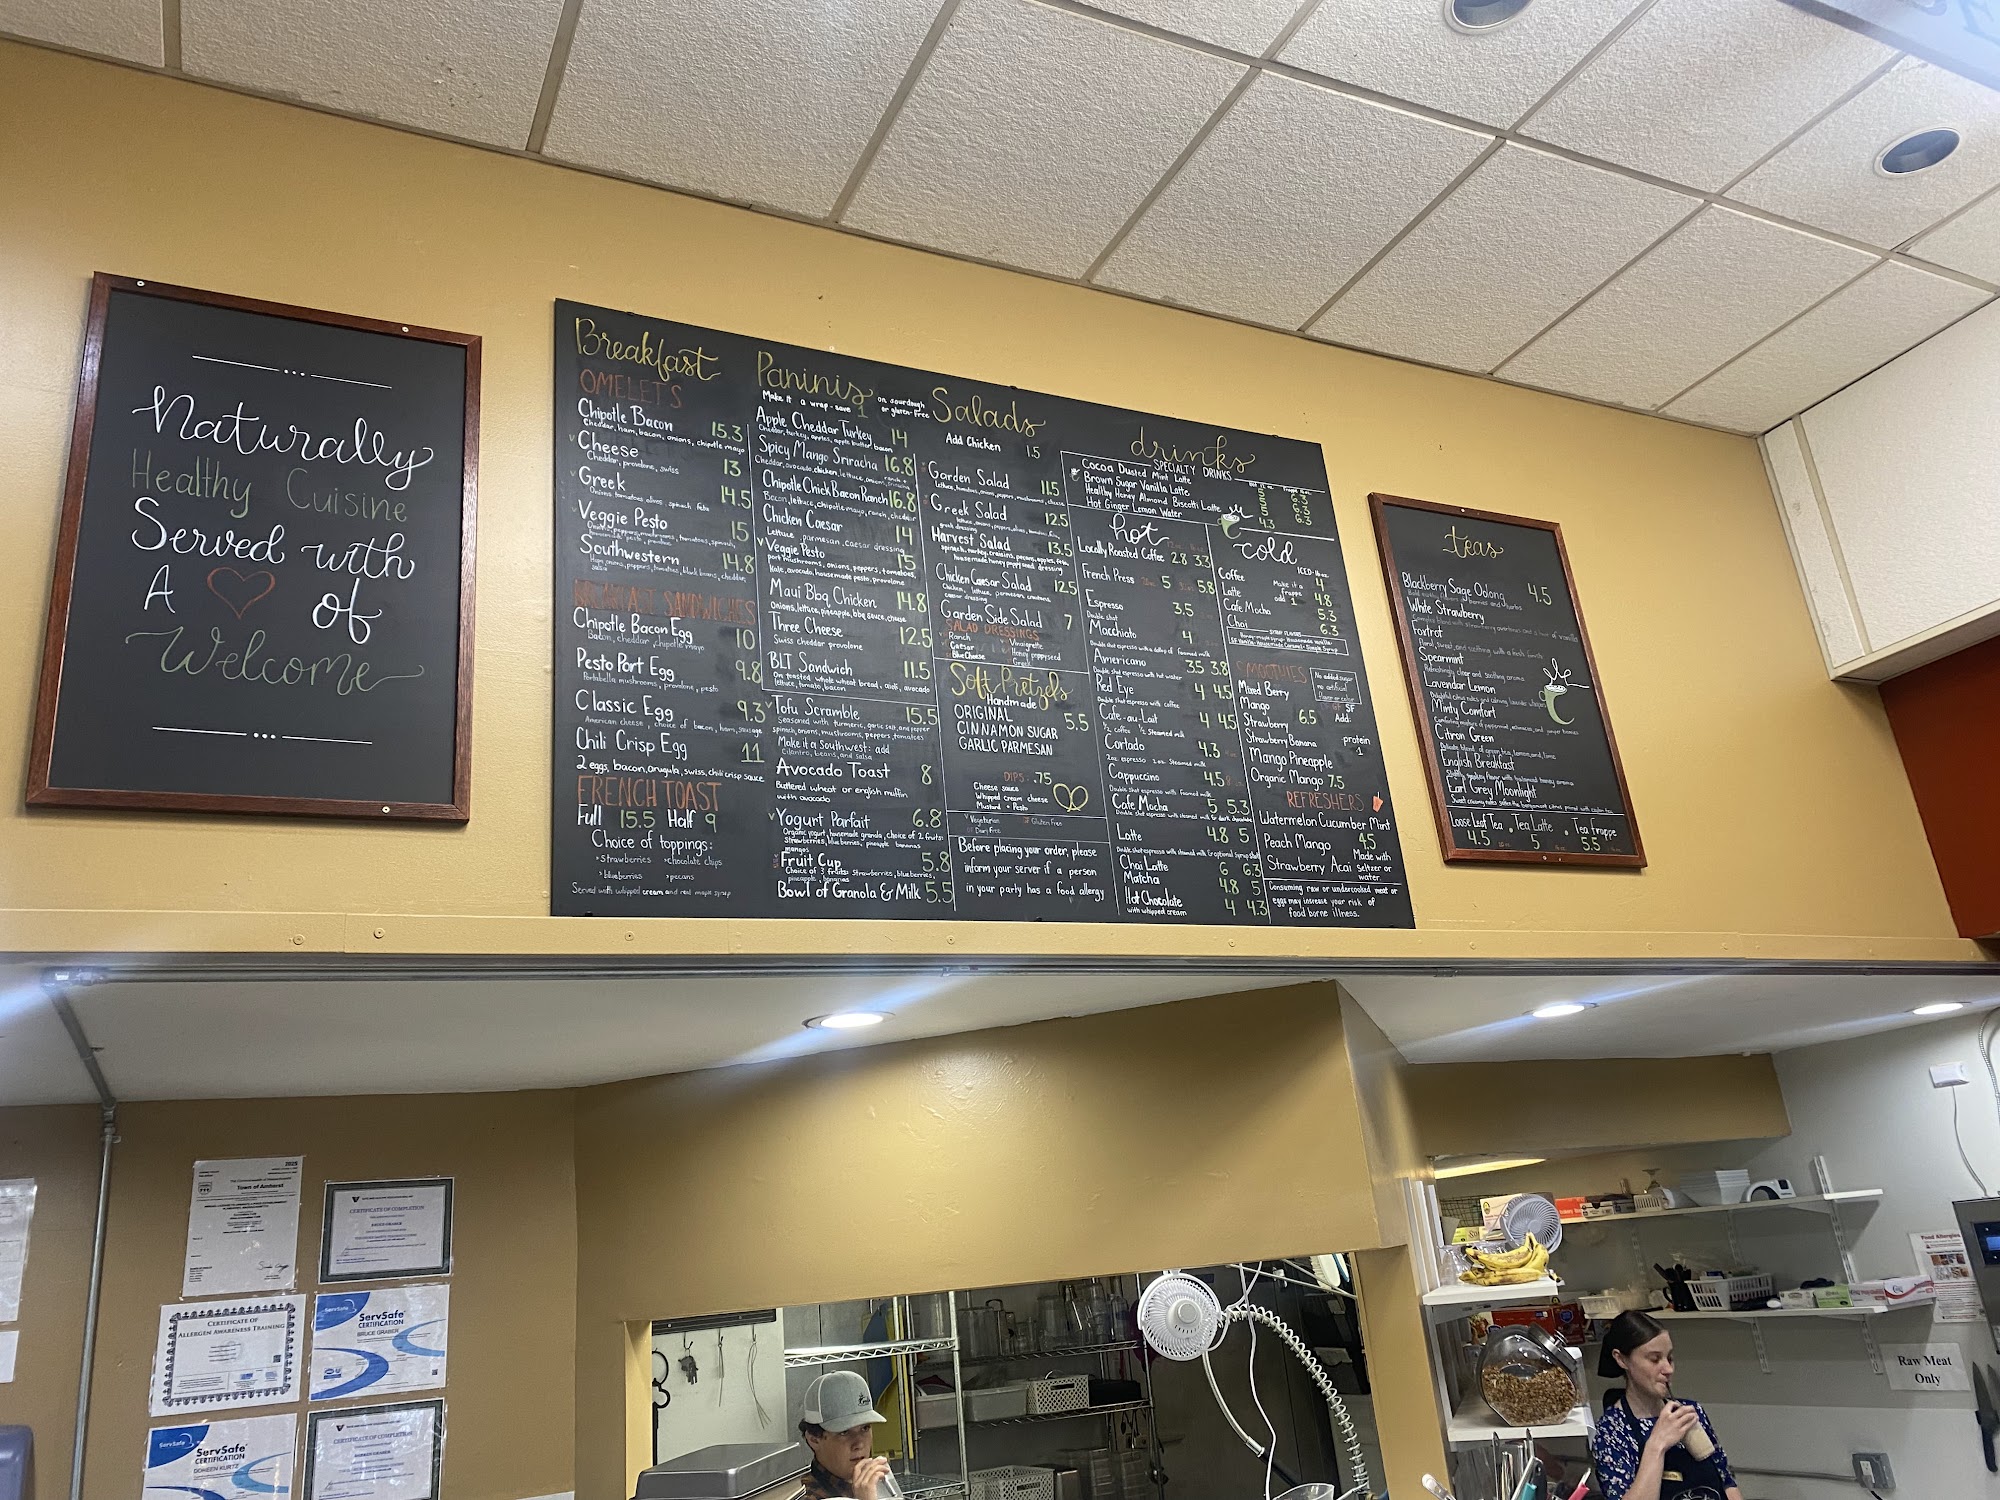 Naturally
Healthy Cuisine
Served with
A of
Welcome
Breakfast
OMELETS
Chipotle Bacon 15.3
Cheddar, ham, bacon, onions, chipotle mayo
Cheese 13
Cheddar, provolone, swiss
Greek 14.5
Onions, tomatoes, olives, spinach, feta
Veggie Pesto 15
Southwestern 14.8
Ham, onions, peppers, tomatoes, black beans, cheddar,
salsa
BREAKFAST SANDWICHES
Chipotle Bacon Egg 10
Bacon, cheddar, chipotle mayo
Pesto Port Egg 9.8
Portabella mushrooms, provolone, pesto
Classic Egg 9.3
American cheese, choice of bacon, ham, sausage
Chili Crisp Egg 11
2 eggs, bacon, arugula, swiss, chili crisp sauce
FRENCH TOAST
Full 15.5 Half 9
Choice of toppings:
strawberries chocolate chips
blueberries pecans
Served with whipped cream and real maple syrup
Paninis
Make it a wrap - save 1
on sourdough
or gluten-free
Apple Cheddar Turkey 14
Cheddar, turkey, apples, apple butter, bacon
Spicy Mango Sriracha 16.8
Chipotle Chick Bacon Ranch 16.8
Bacon, lettuce, chipotle mayo, ranch, cheddar
Chicken Caesar 14
Lettuce, parmesan, caesar dressing
Veggie Pesto 15
port mushrooms, onions, peppers, tomatoes,
kale, avocado, housemade pesto, provolone
Maui Bbq Chicken 14.8
Onions, lettuce, pineapple, bbq sauce, cheese
Three Cheese 12.5
Swiss cheddar provolone
BLT Sandwich 11.5
On toasted whole wheat bread, aioli, avocado
lettuce, tomato, bacon
Tofu Scramble 15.5
Seasoned with turmeric, garlic salt, and pepper
spinach, onions, mushrooms, peppers, tomatoes
Make it a Southwest: add
cilantro, beans, and salsa
Avocado Toast 8
Buttered wheat or english muffin
with avocado
Yogurt Parfait 6.8
Organic yogurt, housemade granola, choice of 2 fruits:
strawberries, blueberries, pineapple bananas
mangos
Fruit Cup 5.8
Choice of 3 fruits: strawberries, blueberries,
pineapple, bananas
Bowl of Granola & Milk 5.5
Salads
Add Chicken 1.5
Garden Salad 11.5
lettuce, tomatoes, onions, peppers, mushrooms, cheese
Greek Salad 12.5
greek dressing
Harvest Salad 13.5
spinach, turkey, craisins, pecans, apples, feta,
housemade honey poppyseed dressing
Chicken Caesar Salad 12.5
Chicken, lettuce, parmesan, croutons,
caesar dressing
Garden Side Salad 7
SALAD DRESSINGS
Ranch Vinaigrette
Caesar Honey poppyseed
Blue Cheese Greek
Soft Pretzels
Handmade
ORIGINAL 5.5
CINNAMON SUGAR
GARLIC PARMESAN
DIPS: .75
Cheese sauce
Whipped cream cheese
Mustard Pesto
Vegetarian Gluten Free
Dairy Free
Before placing your order, please
inform your server if a person
in your party has a food allergy
drinks
SPECIALTY DRINKS
Cocoa Dusted Mint Latte
Brown Sugar Vanilla Latte
Healthy Honey Almond Biscotti Latte
Hot Ginger Lemon Water 4.3
hot
Locally Roasted Coffee 2.8 3.3
French Press 5 5.8
Espresso 3.5
Double shot
Macchiato 4
Double shot espresso with a dollop of foamed milk
Americano 3.5 3.8
Double shot espresso with hot water
Red Eye 4 4.5
Double shot espresso with coffee
Cafe-au-Lait 4 4.5
1/2 coffee 1/2 steamed milk
Cortado 4.3
2oz espresso 2oz steamed milk
Cappuccino 4.5
Double shot espresso with foamed milk
Cafe Mocha 5 5.3
Double shot espresso with steamed milk & dark chocolate
Latte 4.8 5
Double shot espresso with steamed milk & optional syrup shot
Chai Latte 6 6.3
Matcha 4.8 5
Hot Chocolate 4 4.3
with whipped cream
cold
ICED-16oz
Coffee 4
Latte 4.8
Cafe Mocha 5.3
Chai 6.3
Make it a
frappe
add 1
SYRUP FLAVORS
SMOOTHIES
No added sugar
no artificial
flavor or color
Mixed Berry
Mango
Strawberry 6.5
Strawberry Banana
Mango Pineapple
Organic Mango 7.5
Add:
protein
1
REFRESHERS
Watermelon Cucumber Mint
Peach Mango 4.5
Strawberry Acai
Made with
Seltzer or
water
Consuming raw or undercooked meat or
eggs may increase your risk of
food borne illness.
teas
Blackberry Sage Oolong 4.5
White Strawberry
Foxtrot
Spearmint
Refreshingly clear and soothing aroma
Lavendar Lemon
Minty Comfort
Citron Green
English Breakfast
Earl Grey Moonlight
Loose Leaf Tea Tea Latte Tea Frappe
4.5 5 5.5
2025
Town of Amherst
CERTIFICATE OF COMPLETION
BRUCE GRABER
CERTIFICATE OF
ALLERGEN AWARENESS TRAINING
ServSafe
ServSafe
CERTIFICATION
BRUCE GRABER
ServSafe
ServSafe
CERTIFICATION
DOREEN KURTZ
CERTIFICATE OF COMPLETION
Food Allergies
Raw Meat
Only